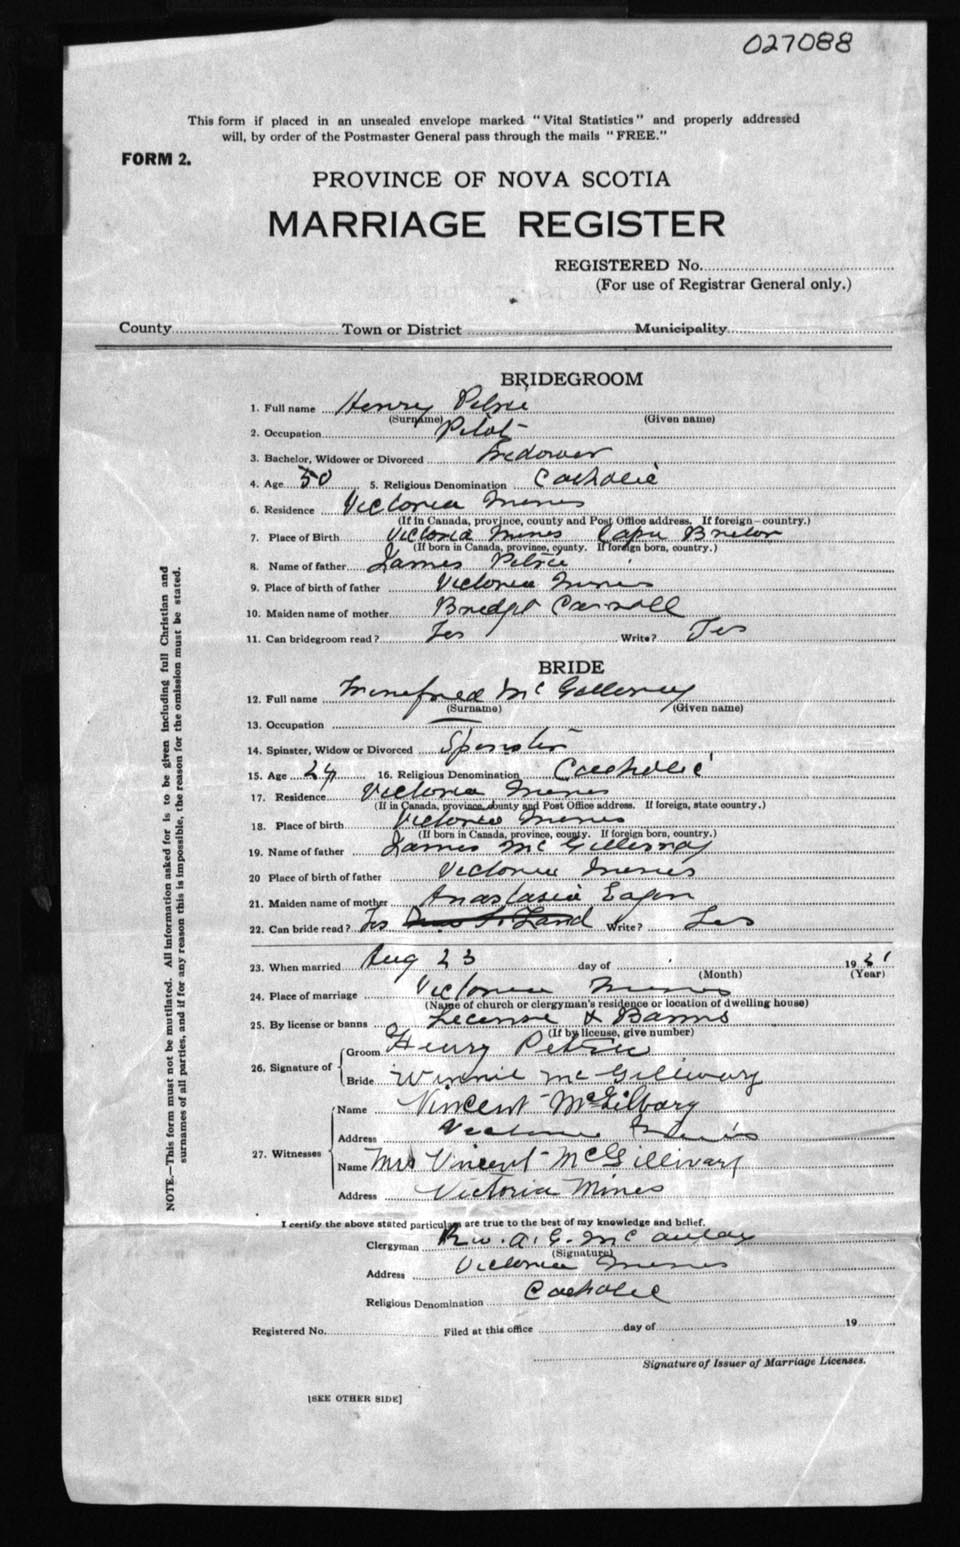 027088
This form if placed in an unsealed envelope marked "Vital Statistics" and properly addressed
will, by order of the Postmaster General pass through the mails "FREE."
FORM 2.
PROVINCE OF NOVA SCOTIA
MARRIAGE REGISTER
REGISTERED No.
(For use of Registrar General only.)
County Town or District Municipality
BRIDEGROOM
1. Full name Henry Petrie
(Surname) (Given name)
2. Occupation Pilot
3. Bachelor, Widower or Divorced Widower
4. Age 50 5. Religious Denomination Catholic
6. Residence Victoria Mines
(If in Canada, province, county and Post Office address. If foreign—country.)
7. Place of Birth Victoria Mines Cape Breton
(If born in Canada, province, county. If foreign born, country.)
8. Name of father James Petrie
9. Place of birth of father Victoria Mines
10. Maiden name of mother Bridget Carroll
11. Can bridegroom read? Yes Write? Yes
BRIDE
12. Full name Winefred McGillvray
(Surname) (Given name)
13. Occupation
14. Spinster, Widow or Divorced Spinster
15. Age 16. Religious Denomination Catholic
17. Residence Victoria Mines
(If in Canada, province, county and Post Office address. If foreign, state country.)
18. Place of birth Victoria Mines
(If born in Canada, province, county. If foreign born, country.)
19. Name of father James McGillivray
20 Place of birth of father Victoria Mines
21. Maiden name of mother Anastasia Eagan
22. Can bride read? Yes Land Write? Yes
23. When married Aug 23 day of 1921
(Month) (Year)
24. Place of marriage Victoria Mines
(Name of church or clergyman's residence or location of dwelling house)
25. By license or banns License & Banns
(If by license, give number)
26. Signature of Groom Henry Petrie
Bride Winnie McGillivary
27. Witnesses Name Vincent McGilvary
Address Victoria Mines
Name Mrs Vincent McGillivary
Address Victoria Mines
I certify the above stated particulars are true to the best of my knowledge and belief.
Clergyman Rev. A. G. McAulay
(Signature)
Address Victoria Mines
Religious Denomination Catholic
Registered No. Filed at this office day of 19
Signature of Issuer of Marriage Licenses.
[SEE OTHER SIDE]
NOTE.—This form must not be mutilated. All information asked for is to be given including full Christian and
surnames of all parties, and if for any reason this is impossible, the reason for the omission must be stated.